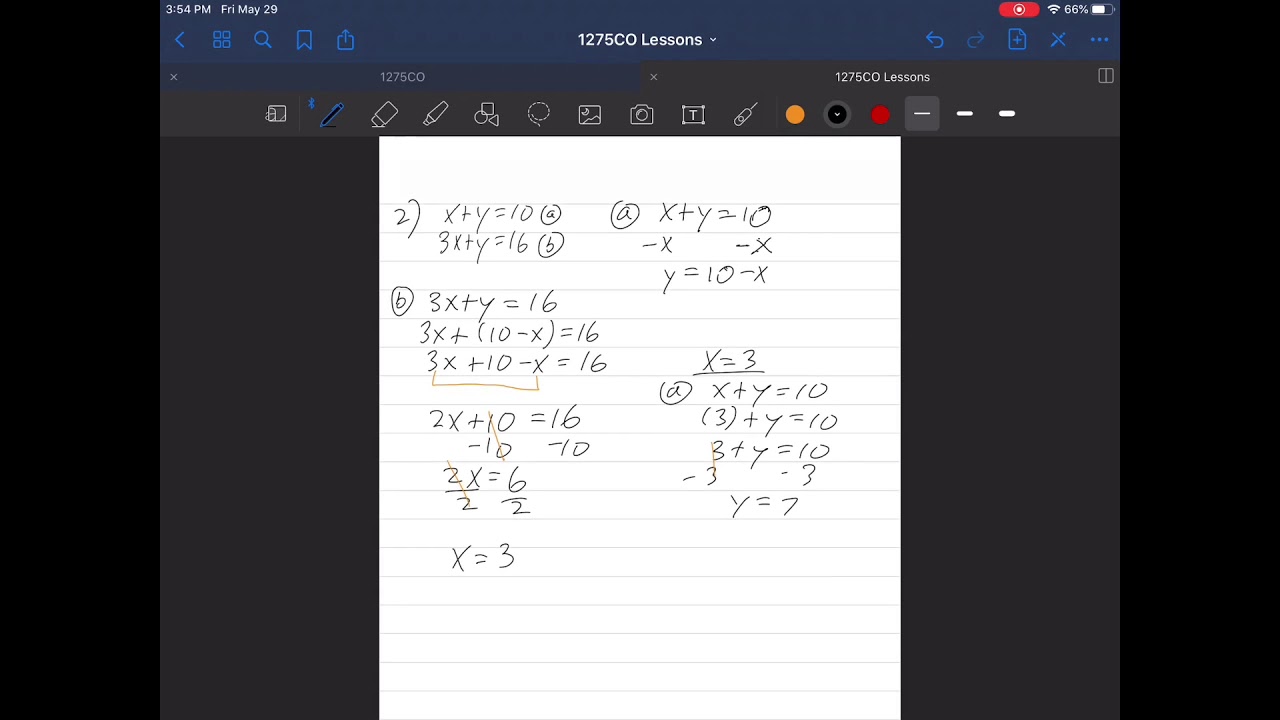 3:54 PM Fri May 29
66%
1275CO Lessons
1275CO
1275CO Lessons
T
2) x+y=10 ⓐ
3x+y=16 ⓑ
ⓐ x+y=10
-x -x
y=10-x
ⓑ 3x+y=16
3x+(10-x)=16
3x+10-x=16
2x+10=16
-10 -10
2x=6
2 2
x=3
x=3
ⓐ x+y=10
(3)+y=10
3+y=10
-3 -3
y=7